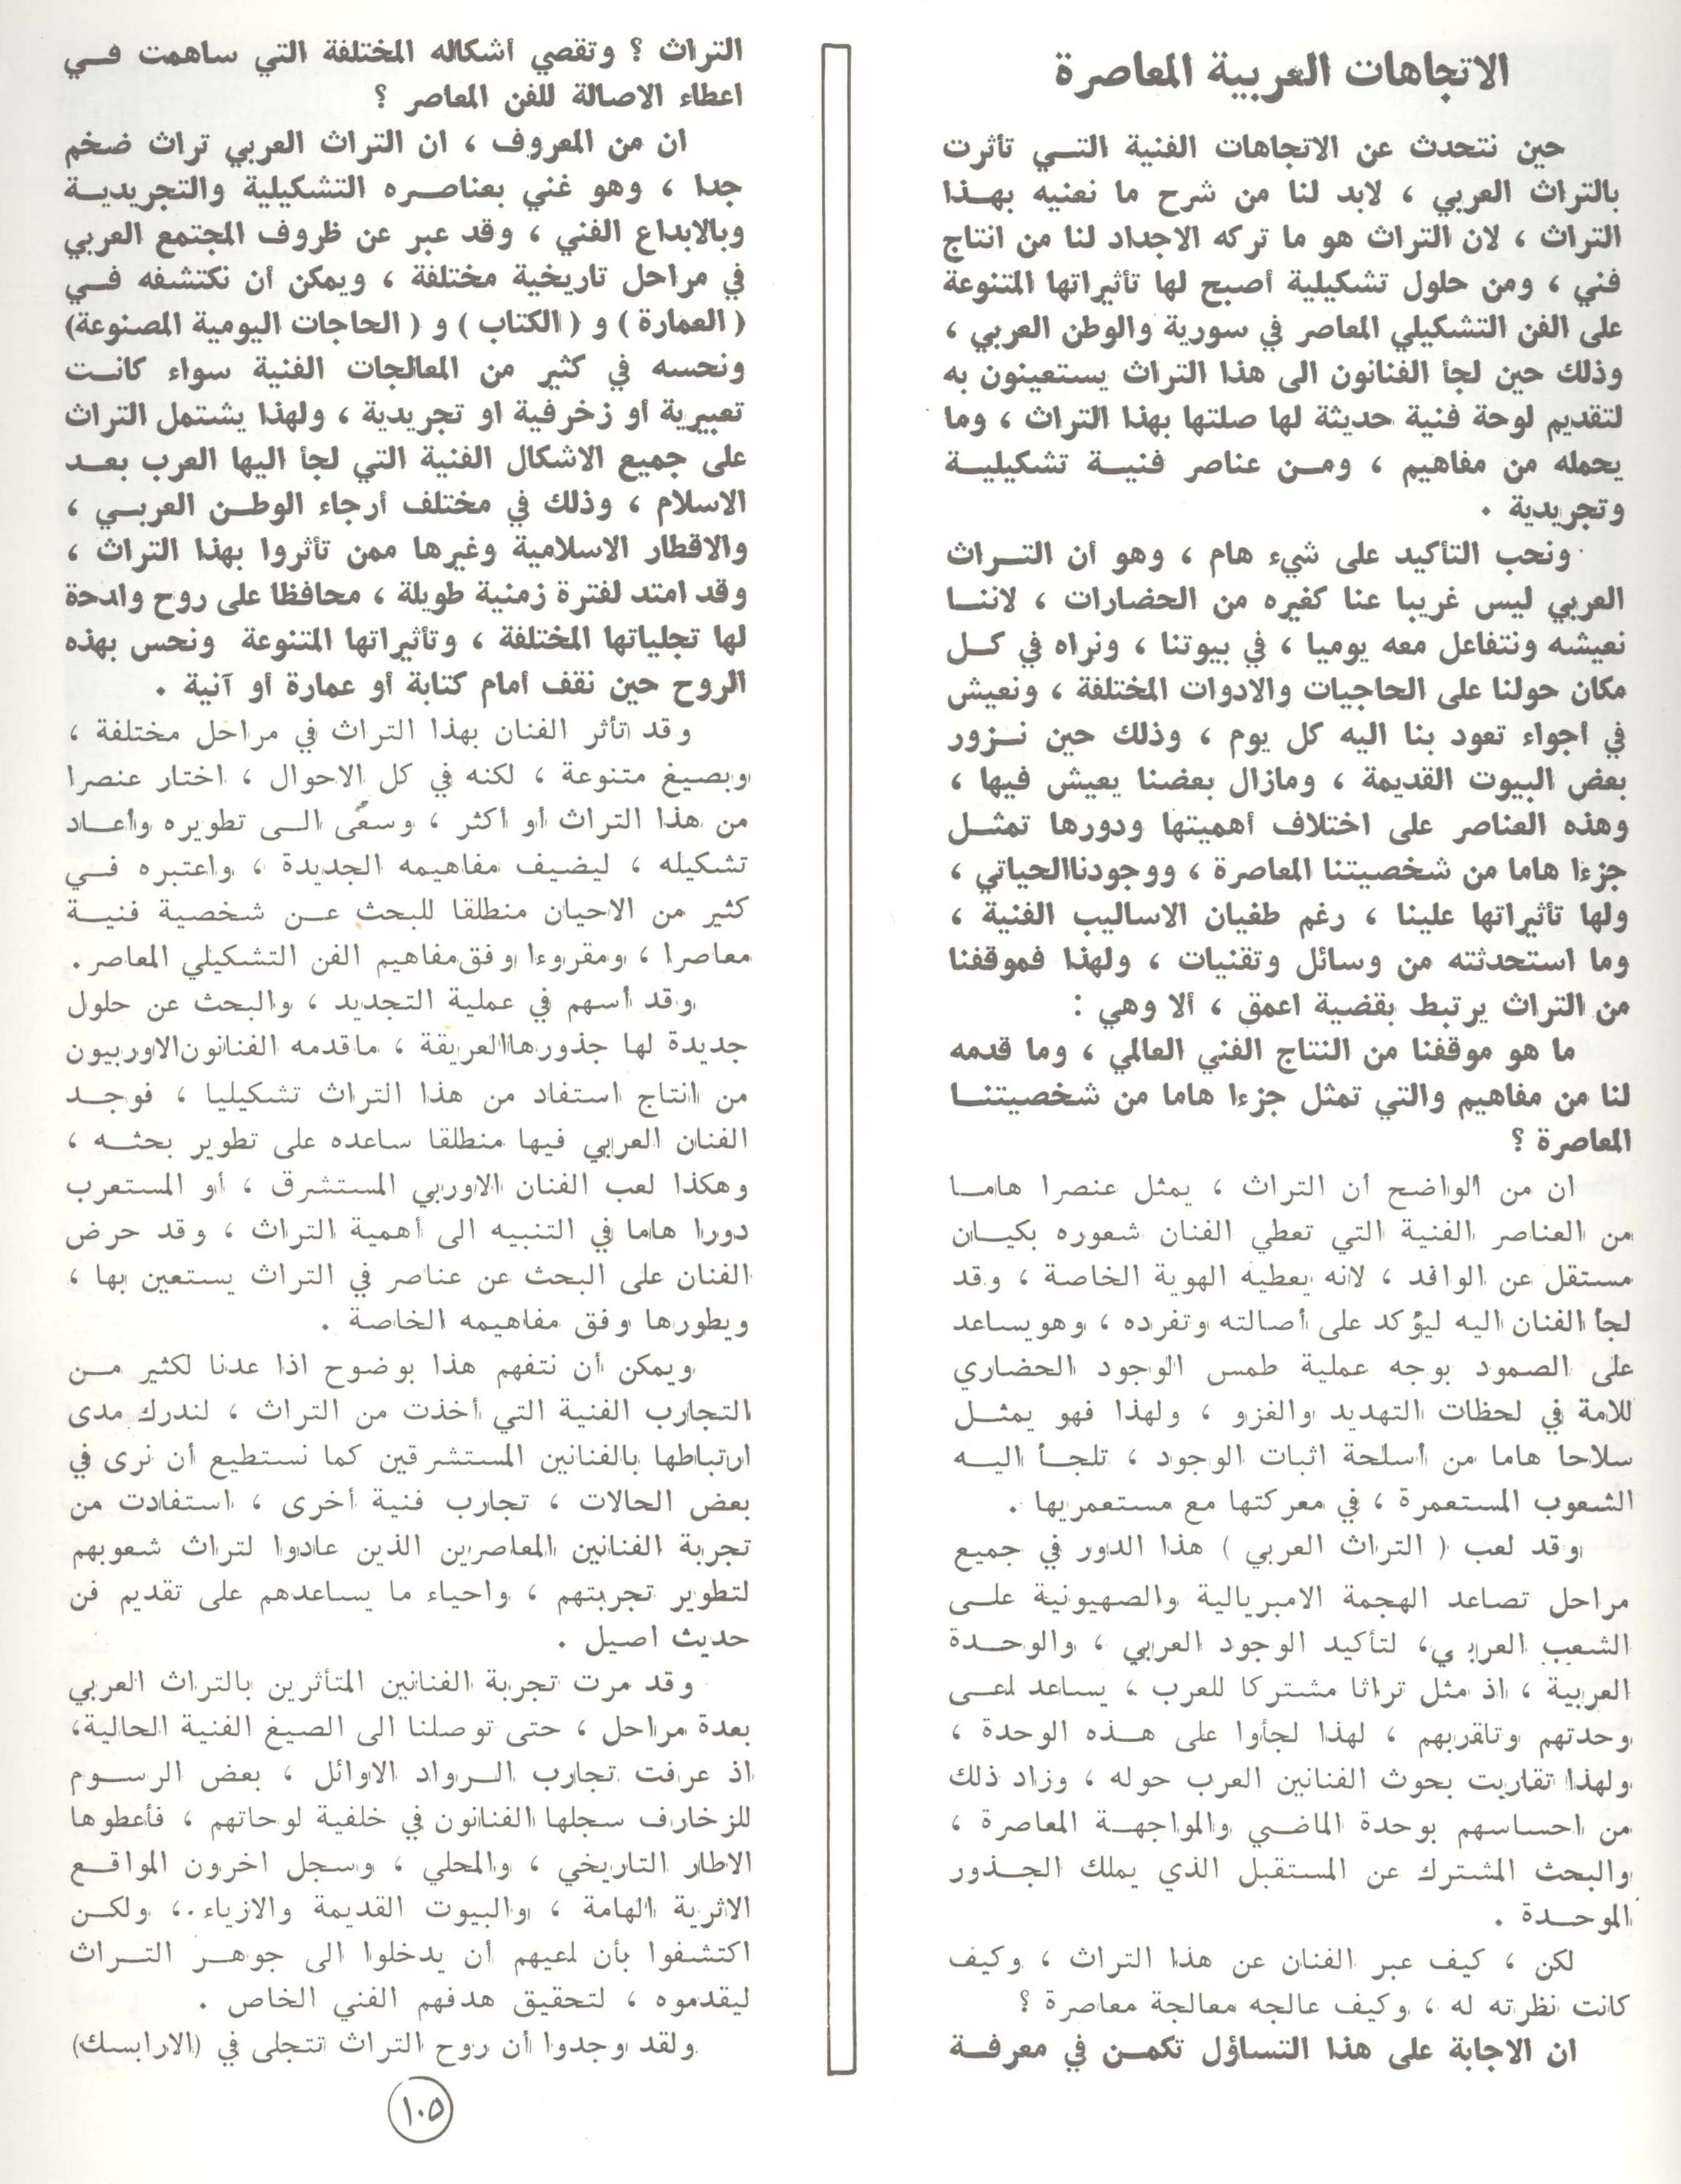 الاتجاهات العربية المعاصرة
حين نتحدث عن الاتجاهات الفنية التي تأثرت
بالتراث العربي ، لابد لنا من شرح ما نعنيه بهذا
التراث ، لان التراث هو ما تركه الاجداد لنا من انتاج
فني ، ومن حلول تشكيلية أصبح لها تأثيراتها المتنوعة
على الفن التشكيلي المعاصر في سورية والوطن العربي ،
وذلك حين لجأ الفنانون الى هذا التراث يستعينون به
لتقديم لوحة فنية حديثة لها صلتها بهذا التراث ، وما
يحمله من مفاهيم ، ومن عناصر فنية تشكيلية
وتجريدية .
ونحب التأكيد على شيء هام ، وهو أن التراث
العربي ليس غريبا عنا كغيره من الحضارات ، لاننا
نعيشه ونتفاعل معه يوميا ، في بيوتنا ، ونراه في كل
مكان حولنا على الحاجيات والادوات المختلفة ، ونعيش
في أجواء تعود بنا اليه كل يوم ، وذلك حين نزور
بعض البيوت القديمة ، ومازال بعضنا يعيش فيها ،
وهذه العناصر على اختلاف أهميتها ودورها تمثل
جزءا هاما من شخصيتنا المعاصرة ، ووجودناالحياتي ،
ولها تأثيراتها علينا ، رغم طغيان الاساليب الفنية ،
وما استحدثته من وسائل وتقنيات ، ولهذا فموقفنا
من التراث يرتبط بقضية اعمق ، ألا وهي :
ما هو موقفنا من النتاج الفني العالمي ، وما قدمه
لنا من مفاهيم والتي تمثل جزءا هاما من شخصيتنا
المعاصرة ؟
ان من الواضح أن التراث ، يمثل عنصرا هاما
من العناصر الفنية التي تعطي الفنان شعوره بكيان
مستقل عن الوافد ، لانه يعطيه الهوية الخاصة ، وقد
لجأ الفنان اليه ليؤكد على أصالته وتفرده ، وهويساعد
على الصمود بوجه عملية طمس الوجود الحضاري
للامة في لحظات التهديد والغزو ، ولهذا فهو يمثل
سلاحا هاما من أسلحة اثبات الوجود ، تلجأ اليه
الشعوب المستعمرة ، في معركتها مع مستعمريها .
وقد لعب ( التراث العربي ) هذا الدور في جميع
مراحل تصاعد الهجمة الامبريالية والصهيونية على
الشعب العربي، لتأكيد الوجود العربي ، والوحدة
العربية ، اذ مثل تراثا مشتركا للعرب ، يساعد لعى
وحدتهم وتاقربهم ، لهذا لجأوا على هذه الوحدة ،
ولهذا تقاربت بحوث الفنانين العرب حوله ، وزاد ذلك
من احساسهم بوحدة الماضي والمواجهة المعاصرة ،
والبحث المشترك عن المستقبل الذي يملك الجذور
الموحدة .
لكن ، كيف عبر الفنان عن هذا التراث ، وكيف
كانت نظرته له ، وكيف عالجه معالجة معاصرة ؟
ان الاجابة على هذا التساؤل تكمن في معرفة
التراث ؟ وتقصي أشكاله المختلفة التي ساهمت في
اعطاء الاصالة للفن المعاصر ؟
ان من المعروف ، ان التراث العربي تراث ضخم
جدا ، وهو غني بعناصره التشكيلية والتجريدية
وبالابداع الفني ، وقد عبر عن ظروف المجتمع العربي
في مراحل تاريخية مختلفة ، ويمكن أن نكتشفه في
( العمارة ) و ( الكتاب ) و ( الحاجات اليومية المصنوعة)
ونحسه في كثير من المعالجات الفنية سواء كانت
تعبيرية أو زخرفية او تجريدية ، ولهذا يشتمل التراث
على جميع الاشكال الفنية التي لجأ اليها العرب بعد
الاسلام ، وذلك في مختلف أرجاء الوطن العربي ،
والاقطار الاسلامية وغيرها ممن تأثروا بهذا التراث ،
وقد امتد لفترة زمنية طويلة ، محافظا على روح وادحة
لها تجلياتها المختلفة ، وتأثيراتها المتنوعة ونحس بهذه
الروح حين نقف أمام كتابة أو عمارة أو آنية .
وقد تأثر الفنان بهذا التراث في مراحل مختلفة ،
وبصيغ متنوعة ، لكنه في كل الاحوال ، اختار عنصرا
من هذا التراث أو اكثر ، وسعى الى تطويره واعاد
تشكيله ، ليضيف مفاهيمه الجديدة ، واعتبره في
كثير من الاحيان منطلقا للبحث عن شخصية فنية
معاصرا ، ومقروءا وفق مفاهيم الفن التشكيلي المعاصر.
وقد أسهم في عملية التجديد ، والبحث عن حلول
جديدة لها جذورهاالعريقة ، ماقدمه الفنانون الاوربيون
من انتاج استفاد من هذا التراث تشكيليا ، فوجد
الفنان العربي فيها منطلقا ساعده على تطوير بحثه ،
وهكذا لعب الفنان الاوربي المستشرق ، أو المستعرب
دورا هاما في التنبيه الى أهمية التراث ، وقد حرض
الفنان على البحث عن عناصر في التراث يستعين بها ،
ويطورها وفق مفاهيمه الخاصة .
ويمكن أن نتفهم هذا بوضوح اذا عدنا لكثير من
التجارب الفنية التي أخذت من التراث ، لندرك مدى
ارتباطها بالفنانين المستشرقين كما نستطيع أن نرى في
بعض الحالات ، تجارب فنية أخرى ، استفادت من
تجربة الفنانين المعاصرين الذين عادوا لتراث شعوبهم
لتطوير تجربتهم ، واحياء ما يساعدهم على تقديم فن
حديث اصيل .
وقد مرت تجربة الفنانين المتأثرين بالتراث العربي
بعدة مراحل ، حتى توصلنا الى الصيغ الفنية الحالية،
اذ عرفت تجارب الرواد الاوائل ، بعض الرسوم
للزخارف سجلها الفنانون في خلفية لوحاتهم ، فأعطوها
الاطار التاريخي ، والمحلي ، وسجل اخرون المواقع
الاثرية الهامة ، والبيوت القديمة والازياء .، ولكن
اكتشفوا بأن لعيهم أن يدخلوا الى جوهر التراث
ليقدموه ، لتحقيق هدفهم الفني الخاص .
ولقد وجدوا أن روح التراث تتجلى في (الارابسك)
١٠٥